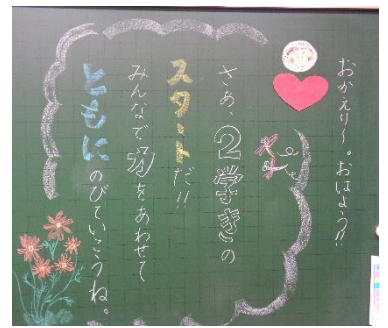 おかえり～。おはよう!!
さあ、2学きの
スタートだ!!
みんなで力をあわせて
ともにのびていこうね。